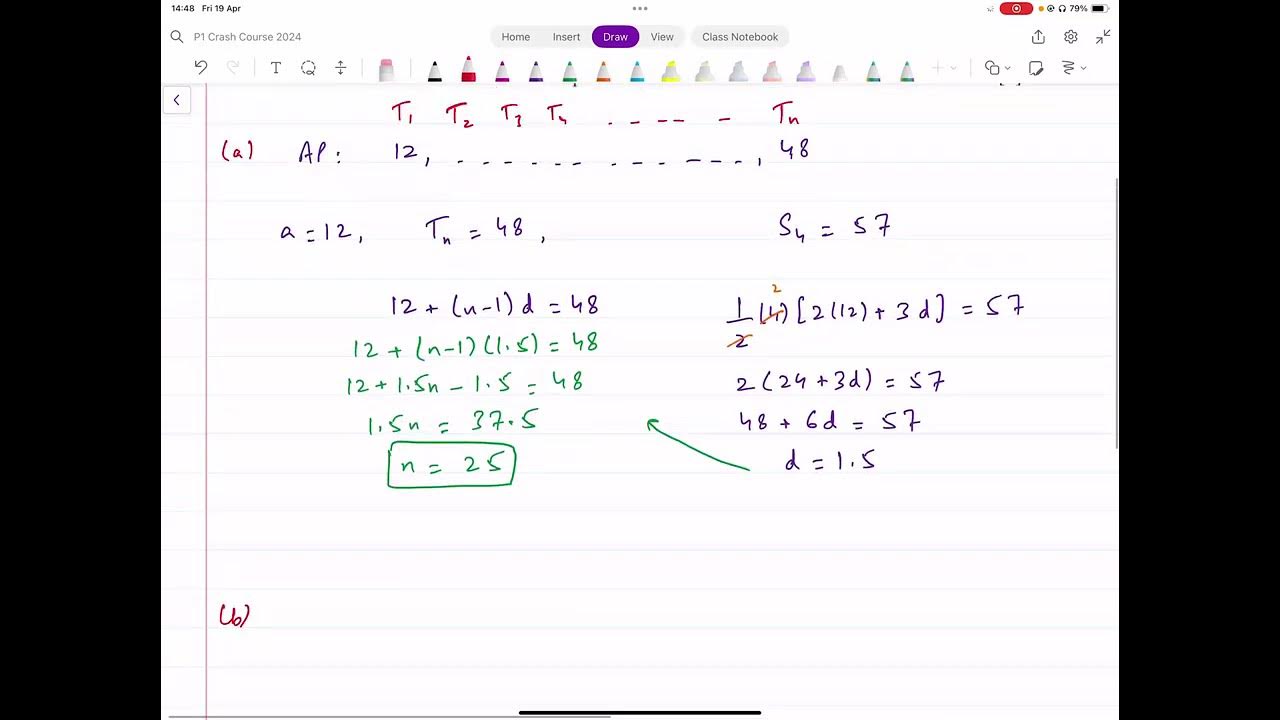 14:48 Fri 19 Apr
79%
P1 Crash Course 2024
Home Insert Draw View Class Notebook
T
T₁ T₂ T₃ T₄ . - - - - Tₙ
(a) AP: 12, - - - - - - - - - - - - , 48
a = 12, Tₙ = 48, S₄ = 57
12 + (n-1) d = 48
12 + (n-1)(1.5) = 48
12 + 1.5n - 1.5 = 48
1.5n = 37.5
n = 25
2
1/2 (4) [2(12) + 3d] = 57
2(24 + 3d) = 57
48 + 6d = 57
d = 1.5
(b)